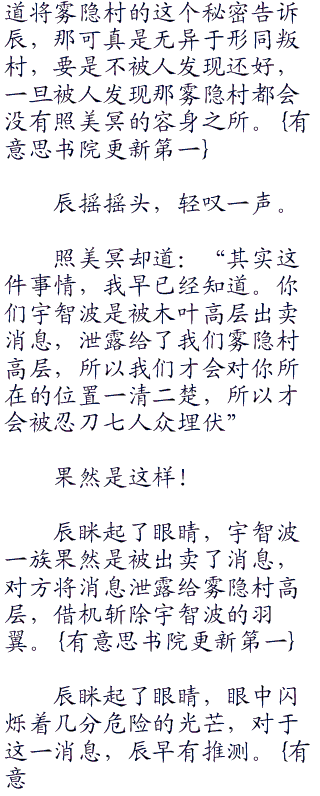 道将雾隐村的这个秘密告诉
辰，那可真是无异于形同叛
村，要是不被人发现还好，
一旦被人发现那雾隐村都会
没有照美冥的容身之所。{有
意思书院更新第一}
辰摇摇头，轻叹一声。
照美冥却道：“其实这
件事情，我早已经知道。你
们宇智波是被木叶高层出卖
消息，泄露给了我们雾隐村
高层，所以我们才会对你所
在的位置一清二楚，所以才
会被忍刀七人众埋伏”
果然是这样！
辰眯起了眼睛，宇智波
一族果然是被出卖了消息，
对方将消息泄露给雾隐村高
层，借机斩除宇智波的羽
翼。{有意思书院更新第一}
辰眯起了眼睛，眼中闪
烁着几分危险的光芒，对于
这一消息，辰早有推测。{有
意